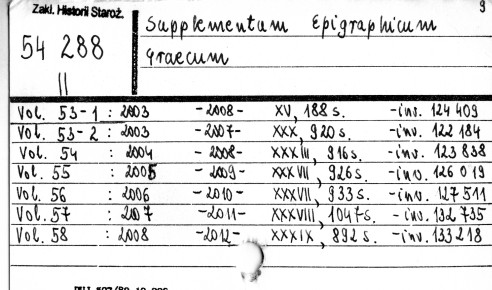 Zakł. Historii Staroż.
9
54 288
II
Supplementum Epigraphicum
Graecum
Vol. 53-1 : 2003 -2008- XV, 188 s. -inv. 124 409
Vol. 53-2 : 2003 -2007- XXX, 920 s. -inv. 122 184
Vol. 54 : 2004 -2008- XXXIII, 916 s. -inv. 123 838
Vol. 55 : 2005 -2009- XXXVII, 926 s. -inv. 126 019
Vol. 56 : 2006 -2010- XXXVII, 933 s. -inv. 127 511
Vol. 57 : 2007 -2011- XXXVIII, 1047 s. -inv. 132 735
Vol. 58 : 2008 -2012- XXXIX, 892 s. -inv. 133 218